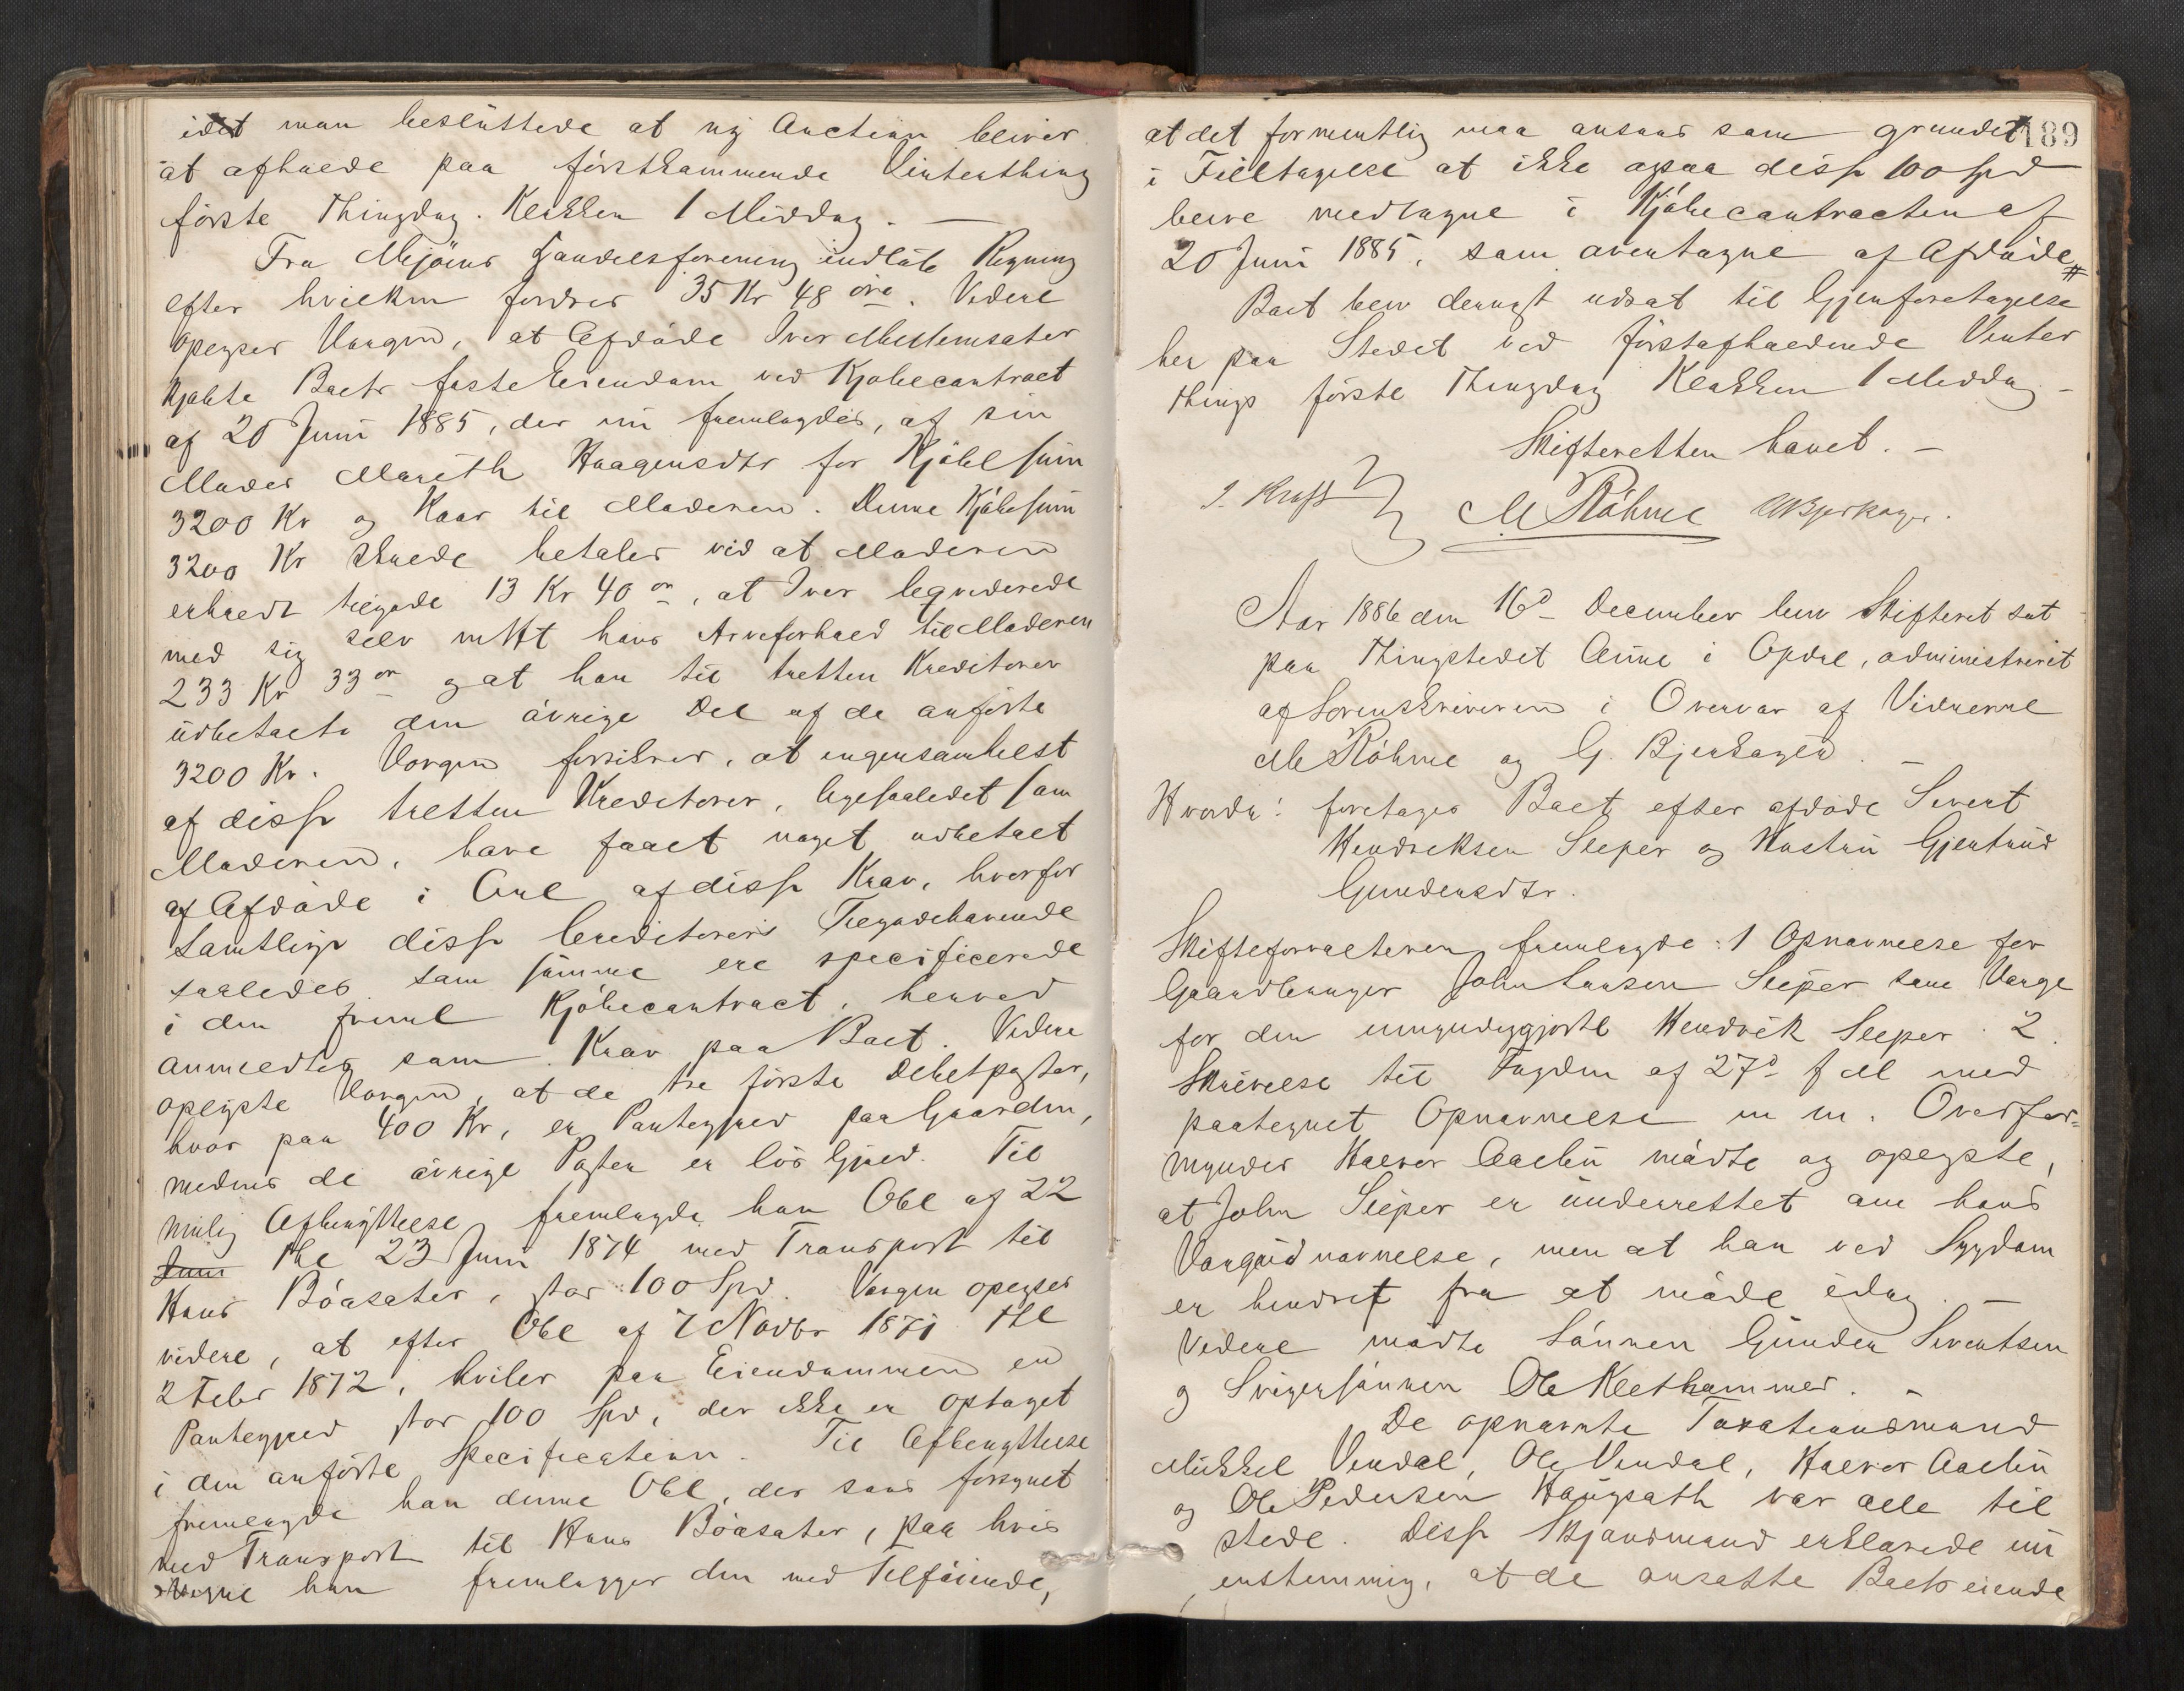 idet man besluttede at ny Auction bliver
at afholde paa förstkommende Vinterthing
förste Thingdag. Klokken 1 Middag. —
Fra Mjöens Handelsforening indløb Regning
efter hvilken fordres 35 Kr 48 öre. Videre
oplyser Vergen, at Afdöde Iver Mellemsæter
kjöbte Boets faste Eiendom ved Kjöbecontract
af 20 Juni 1885, der nu fremlagdes, af sin
Moder Marith Haagensdtr for Kjöbesum
3200 Kr og Kaar til Moderen. Denne Kjöbesum
3200 Kr skulde betales ved at Moderen
erholdt tilgode 13 Kr 40 ör, at Iver liqviderede
med sig selv mktt hans Arveforhold til Moderen
233 Kr 33 ör og at han til tretten Kreditorer
udbetalte den övrige Del af de anförte
3200 Kr. Vergen forsikrer, at ingensomhelst
af disse tretten Kreditorer, ligesaalidet som
Moderen, have faaet noget udbetalt
af Afdöde i Anl af disse Krav, hvorfor
samtlige disse Creditorers Tilgodehavende
saaledes som samme ere specificerede
i den freml Kjöbecontract, herved
anmeldtes som Krav paa Boet. Videre
oplyste Vergen, at de tre förste Debetposter,
hvor paa 400 Kr, er Pantegjeld paa Gaarden,
medens de övrige Poster er lös Gjæld. Til
mulig Afbenyttelse fremlagde han Obl af 22
Juni thl 23 Juni 1874 med Transport til
Hans Böasæter, stor 100 Spd. Vergen oplyser
videre, at efter Obl af 7 Novbr 1871 thl
2 Febr 1872, hviler paa Eiendommen en
Pantegjeld stor 100 Spd, der ikke er optaget
i den anförte Specification. Til Afbenyttelse
fremlagde han denne Obl, der saas forsynet
med Transport til Hans Böasæter, paa hvis
Vegne han fremlægger den med Tilföiende,
189
at det formentlig maa ansees som grundet
i Feiltagelse at ikke ogsaa disse 100 Spd
bleve medtagne i Kjöbecontracten af
20 Juni 1885, som overtagne af Afdöde #
Boet blev dernæst udsat til Gjenforetagelse
her paa Stedet ved förstafholdende Vinter
things förste Thingdag Klokken 1 Middag –
Skifteretten hævet. –
I. Krafft M Röhme GBjerkager.
Aar 1886 den 16d December blev Skifteret sat
paa Thingstedet Aune i Opdal, administreret
af Sorenskriveren i Overvær af Vidnerne
M Röhme og G. Bjerkager. –
Hvorda: foretages Boet efter afdöde Sivert
Hendriksen Sliper og Hustru Gjertrud
Gundersdtr.
Skifteforvalteren fremlagde: 1 Opnævnelse for
Gaardbruger John Larsen Sliper som Verge
for den umyndiggjorte Hendrik Sliper. 2.
Skrivelse til Fogden af 27d f M med
paategnet Opnævnelse m m. Overfor=
mynder Halvor Aalbu mödte og oplyste,
at John Sliper er underrettet om hans
Vergeudnævnelse, men at han ved Sygdom
er hindret fra at möde idag. –
Videre mödte Sönnen Gunder Sivertsen
og Svigersönnen Ole Klethammer. –
De opnævnte Taxationsmænd
Mikkel Vindal, Ole Vindal, Halvor Aalbu
og Ole Pedersen Haugsæth var alle til
stede. Disse Skjönsmænd erklærede nu
enstemmig, at de ansatte Boets eiende